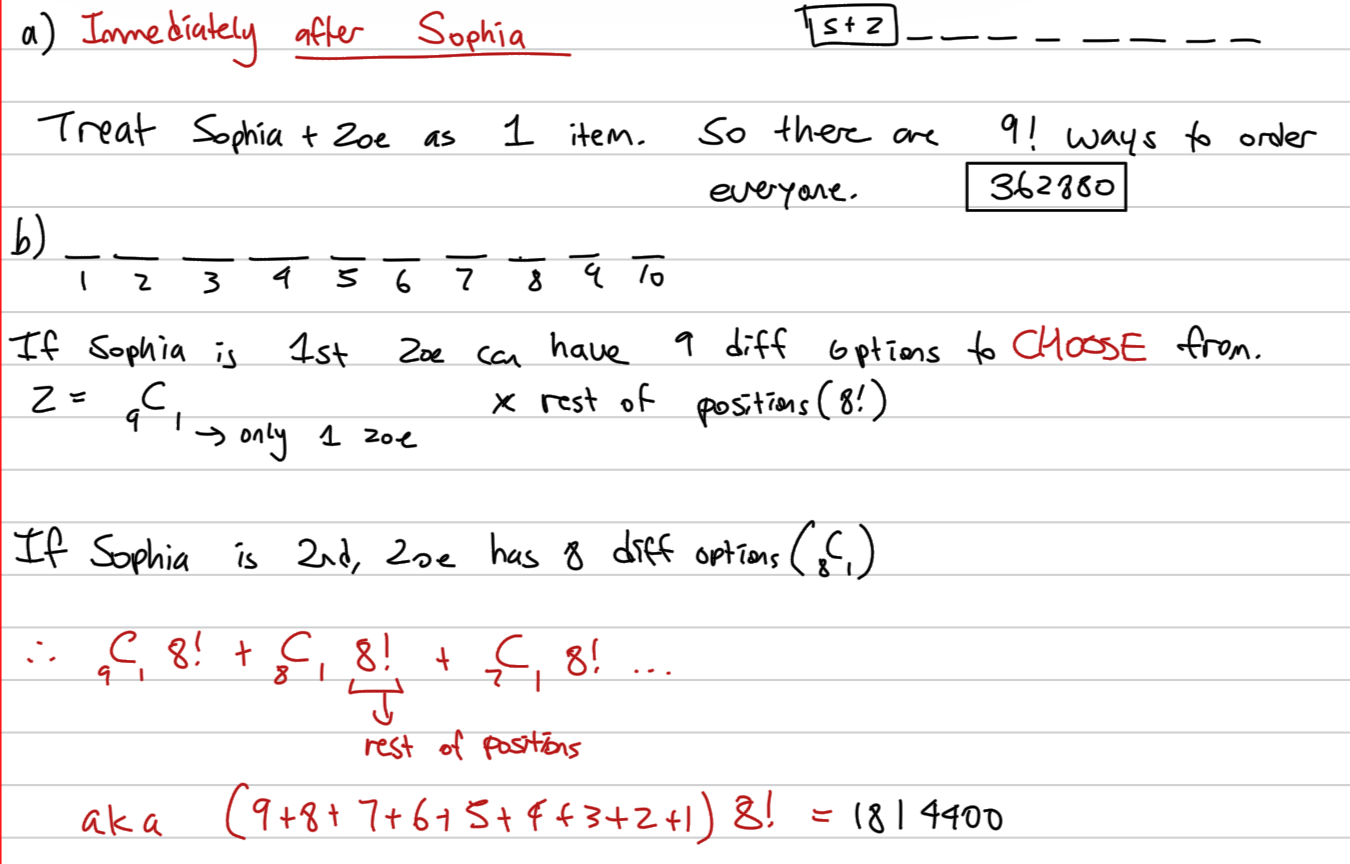 a) Immediately after Sophia S+Z
Treat Sophia + Zoe as 1 item. So there are 9! ways to order
everyone. 362880
b)
1 2 3 4 5 6 7 8 9 10
If Sophia is 1st Zoe can have 9 diff options to CHOOSE from.
Z = ₉C₁ × rest of positions (8!)
→ only 1 zoe
If Sophia is 2nd, Zoe has 8 diff options (₈C₁)
∴ ₉C₁ 8! + ₈C₁ 8! + ₇C₁ 8! ...
rest of positions
aka (9+8+7+6+5+4+3+2+1) 8! = 1814400